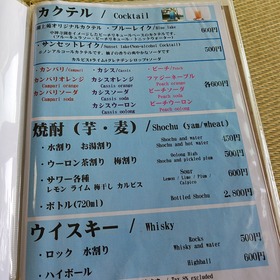 カクテル / Cocktail
オリジナルカクテル・ブルーレイク/Blue lake 600円
・サンセットレイク/Sunset lake(Non-alcohol Cocktail) 500円
ノンアルコールカクテルです。
カルピス+ライム+グレナデンシロップ+ソーダ
カンパリ/Campari ・カシス/Cassis ・ピーチ/Peach
カンパリオレンジ カシスオレンジ ファジーネーブル 各600円
Campari orange Cassis orange Peach orange
カンパリソーダ カシスソーダ ピーチソーダ
Campari soda Cassis soda Peach soda
カシスウーロン ピーチウーロン
Cassis oolong Peach oolong
焼酎(芋・麦) / Shochu (yam/wheat)
・水割り お湯割り Shochu and water 450円
・ウーロン茶割り 梅割り Oolong Highball 500円
Shochu and pickled plum
・サワー各種 Sour 600円
レモン ライム 梅干し カルピス Lemon / Lime / Plum / Calpico
・ボトル(720ml) Bottled Shochu 2,800円
ウイスキー / Whisky
・ロック 水割り Rocks 500円
Whisky and water
・ハイボール Highball 600円